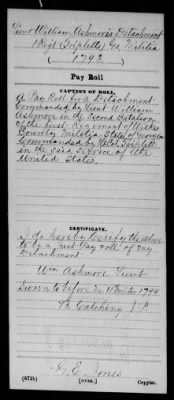 Lieut William Ashmore's Detachment
1 Regt (Triplett's) Ga. Militia
(1793)
Pay Roll
CAPTION OF ROLL.
A Pay Roll for a Detachment
Commanded by Lieut William
Ashmore in the Second Battalion
of the first Regiment of Wilkes
County Militia State of Georgia
Commanded by Triplett
in the Service of the
United States.
CERTIFICATE.
I do hereby Certify the above
to be a just Pay roll of my
Detachment
Wm Ashmore Lieut
Sworn to before me 1794
B Catching J P
G. E. Jones
(572b) [OVER.] Copyist.